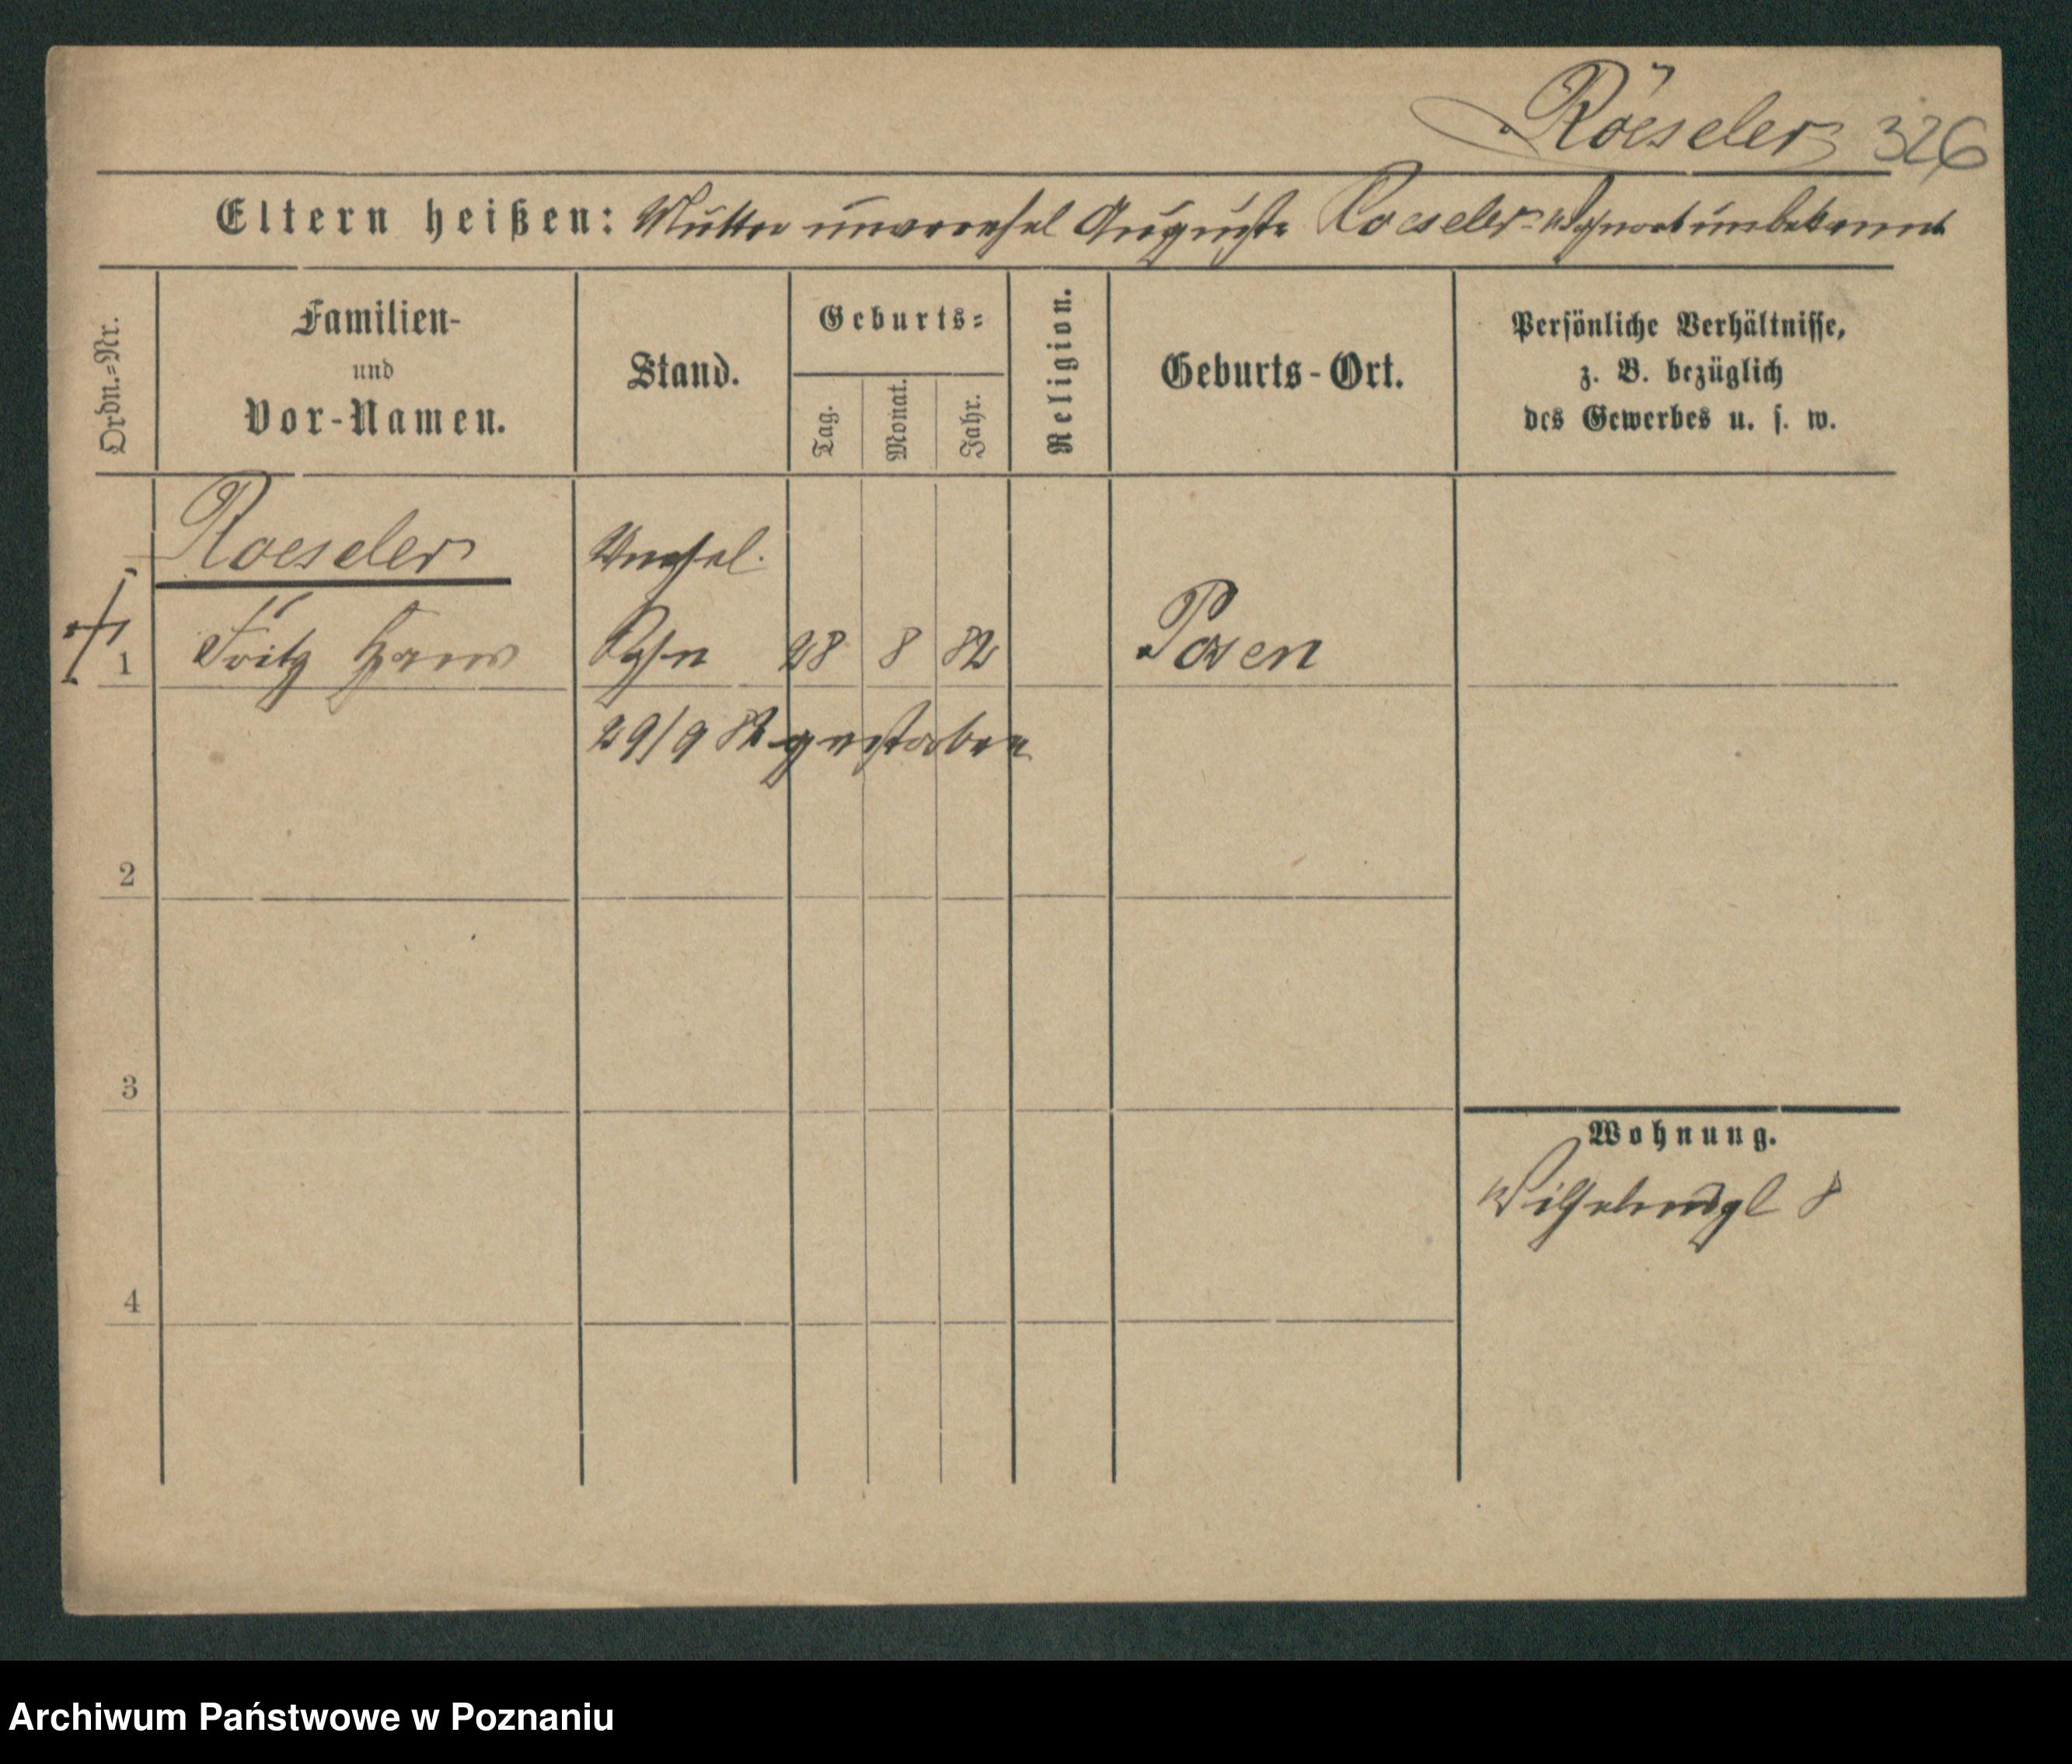 Röeseler 326
Eltern heißen: Mutter unverehel Auguste Roeseler Wohnort unbekannt
Ordn.=Nr.
Familien-
und
Vor-Namen.
Stand.
Geburts=
Tag.
Monat.
Jahr.
Religion.
Geburts-Ort.
Persönliche Verhältnisse,
z. B. bezüglich
des Gewerbes u. s. w.
Roeseler
1 Fritz Hans
28 8 82 Posen
29/9 82 gestorben
2
3
Wohnung.
Wilhelmspl 8
4
Archiwum Państwowe w Poznaniu